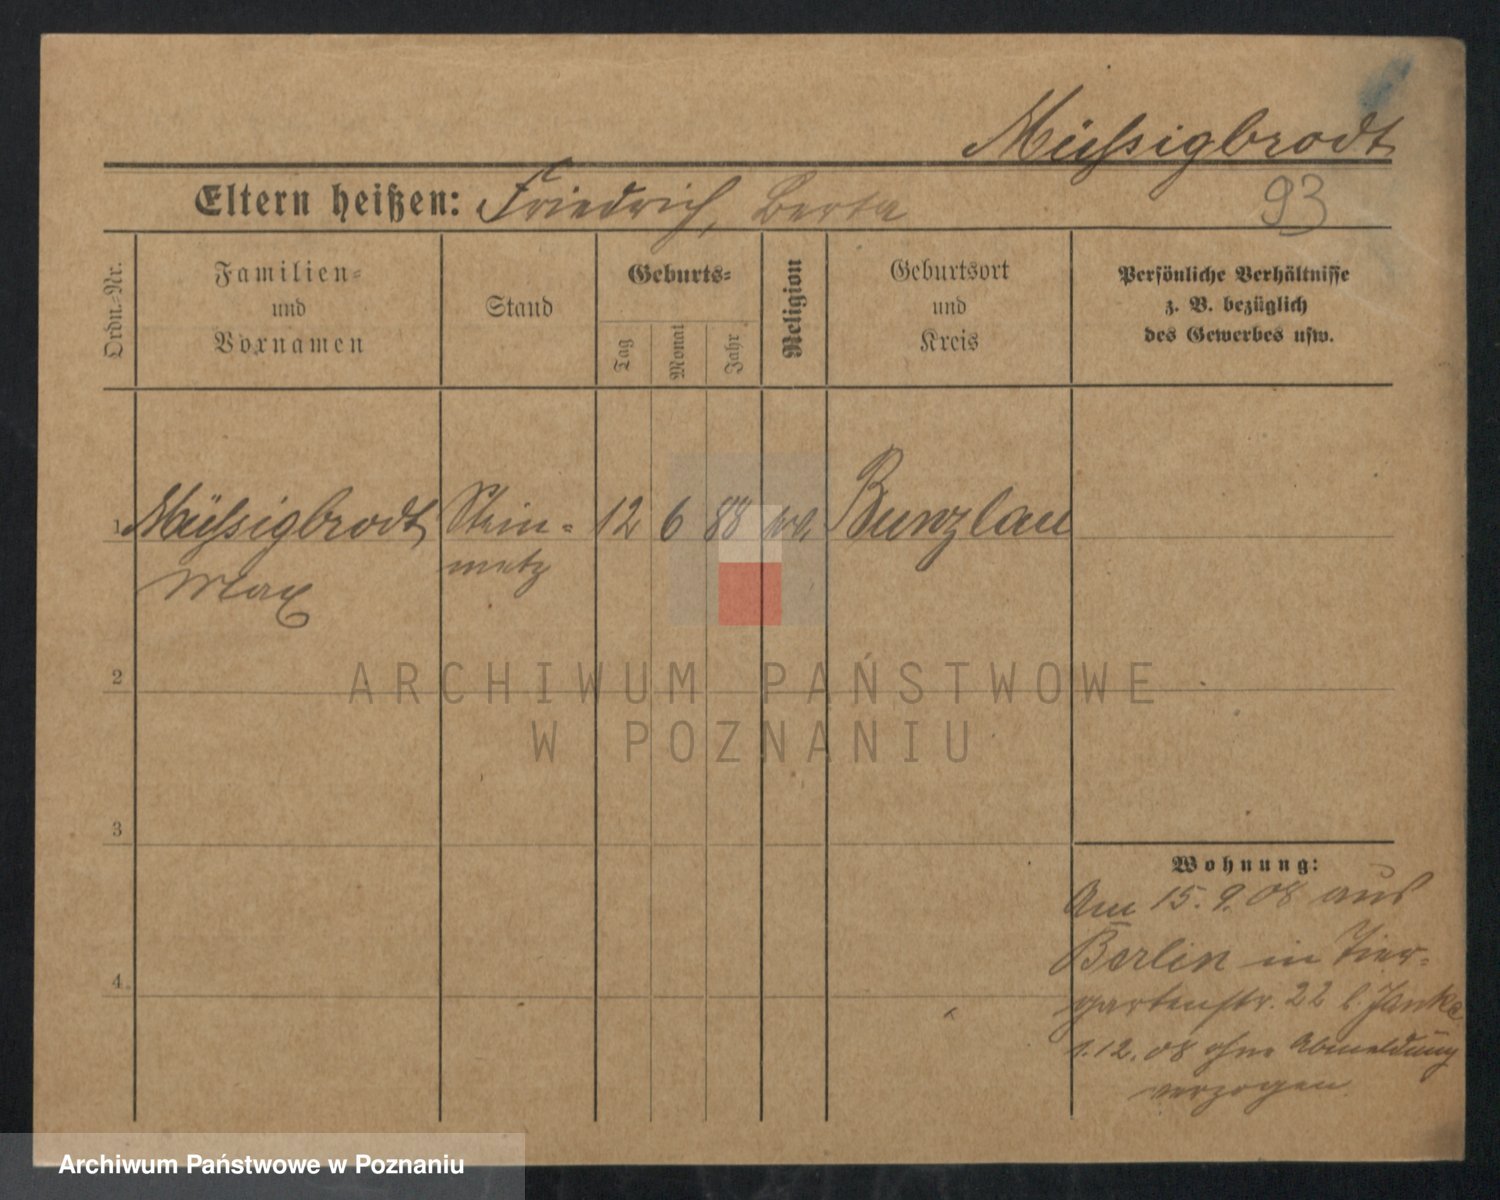 Müssigbrodt
Eltern heißen: Friedrich, Berta
93
Ordn.-Nr.
Familien-
und
Vornamen
Stand
Geburts-
Tag
Monat
Jahr
Religion
Geburtsort
und
Kreis
Persönliche Verhältnisse
z. B. bezüglich
des Gewerbes usw.
1 Müssigbrodt Stein- 12 6 88 Bunzlau
Max metz
2
3
4
Wohnung:
Am 15.9.08 aus
Berlin in Tier-
gartenstr. 22 b. Janke
1.12.08 ohne Abmeldung
verzogen
ARCHIWUM PAŃSTWOWE
W POZNANIU
Archiwum Państwowe w Poznaniu